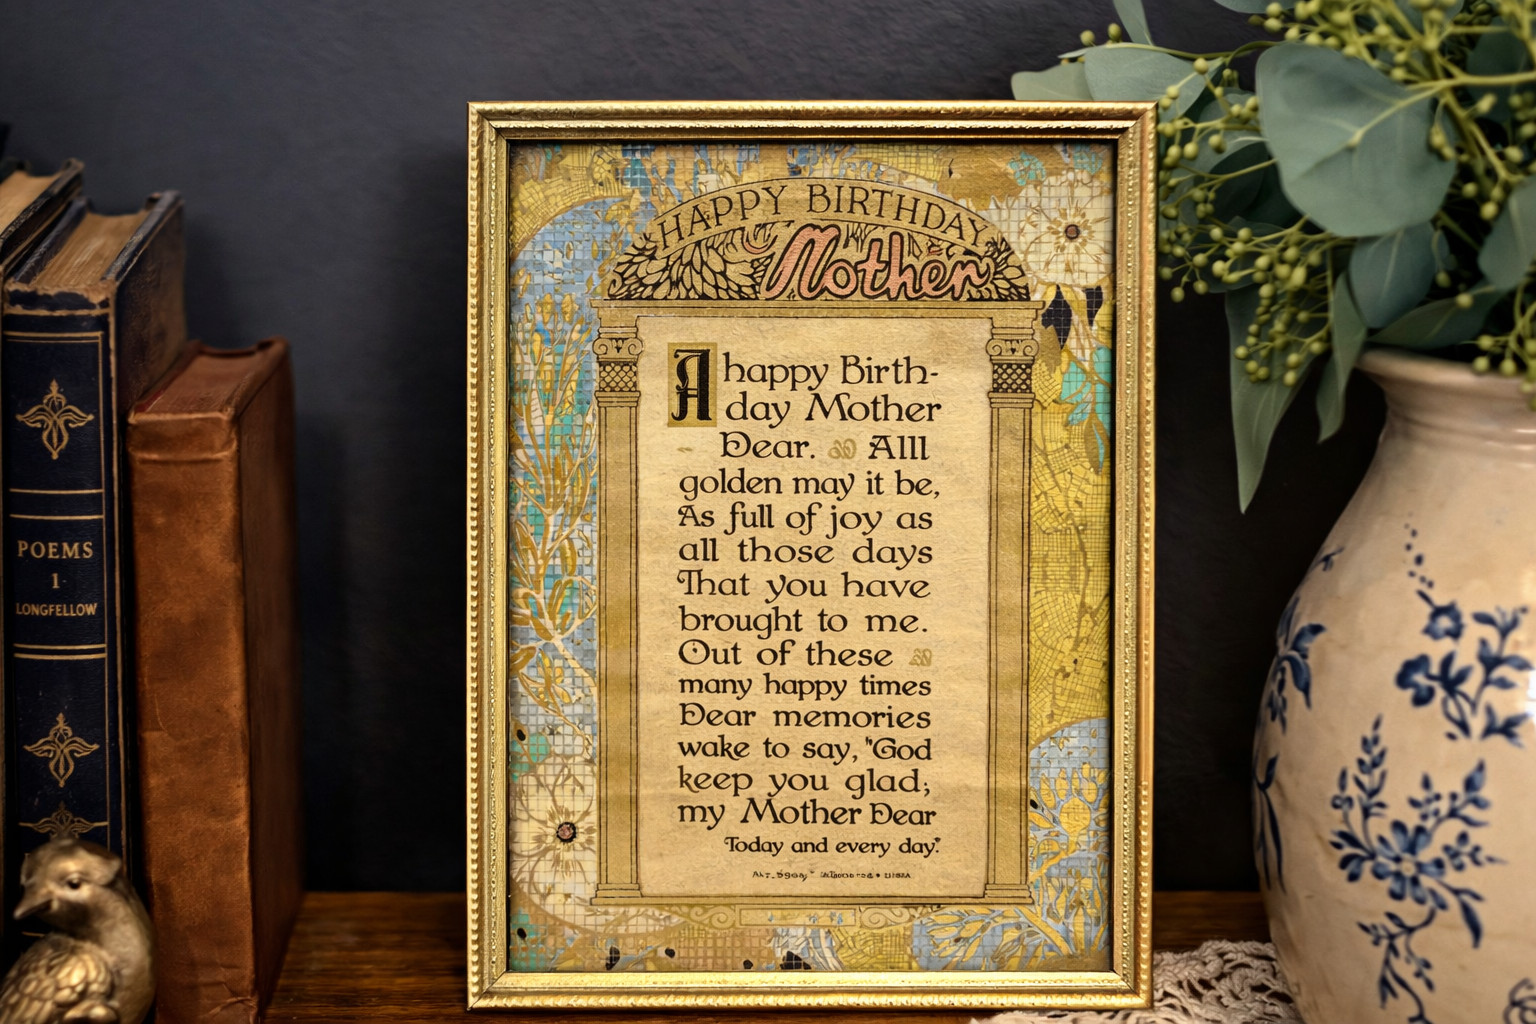 POEMS
1
LONGFELLOW
HAPPY BIRTHDAY
Mother
A happy Birth-
day Mother
Dear. Alll
golden may it be,
As full of joy as
all those days
That you have
brought to me.
Out of these
many happy times
Dear memories
wake to say, "God
keep you glad;
my Mother Dear
Today and every day."